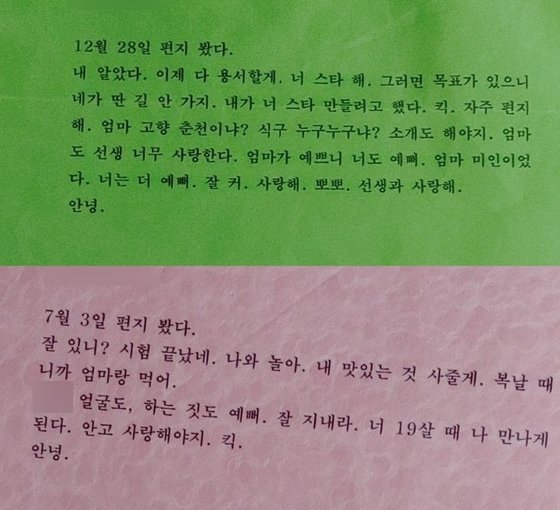 12월 28일 편지 봤다.
내 알았다. 이제 다 용서할게. 너 스타 해. 그러면 목표가 있으니
네가 딴 길 안 가지. 내가 너 스타 만들려고 했다. 킥. 자주 편지
해. 엄마 고향 춘천이냐? 식구 누구누구냐? 소개도 해야지. 엄마
도 선생 너무 사랑한다. 엄마가 예쁘니 너도 예뻐. 엄마 미인이었
다. 너는 더 예뻐. 잘 커. 사랑해. 뽀뽀. 선생과 사랑해.
안녕.
7월 3일 편지 봤다.
잘 있니? 시험 끝났네. 나와 놀아. 내 맛있는 것 사줄게. 복날 때
니까 엄마랑 먹어.
얼굴도, 하는 짓도 예뻐. 잘 지내라. 너 19살 때 나 만나게
된다. 안고 사랑해야지. 킥.
안녕.